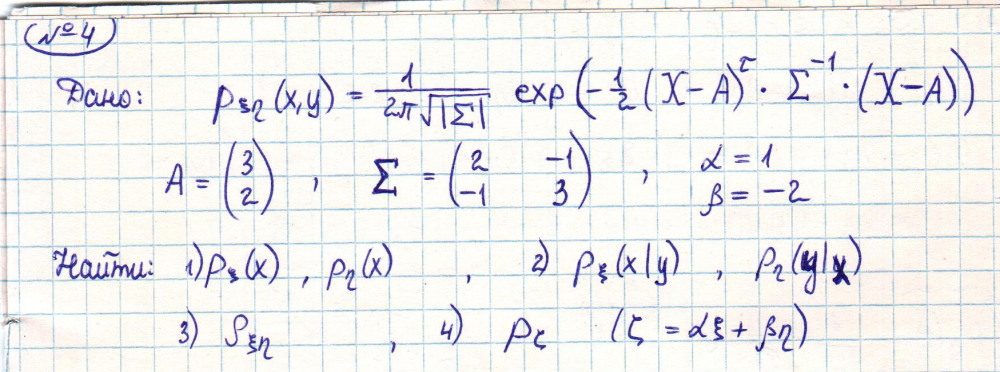 №4
Дано: p_ξη(x,y) = 1/(2π√|Σ|) exp(-1/2 (X-A)^τ · Σ^-1 · (X-A))
A = (3 2), Σ = (2 -1 -1 3), α = 1 β = -2
Найти: 1) p_ξ(x), p_η(x), 2) p_ξ(x|y), p_η(y|x)
3) ρ_ξη, 4) p_ζ (ζ = αξ + βη)